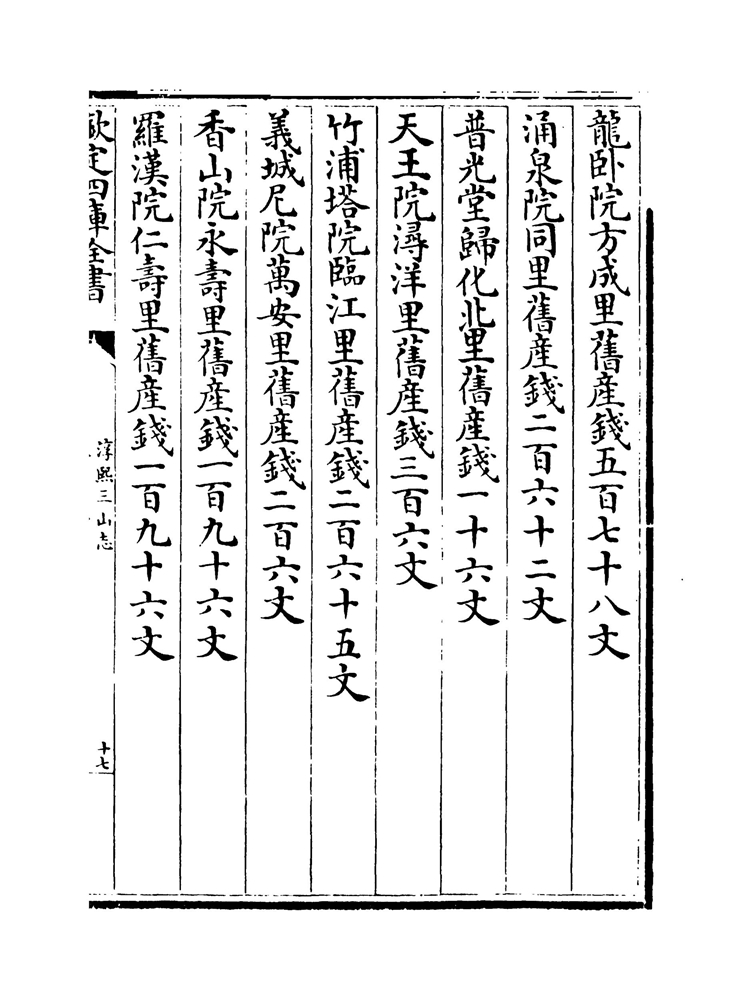 龍卧院方成里舊産錢五百七十八文
涌泉院同里舊産錢二百六十二文
普光堂歸化北里舊産錢一十六文
天王院潯洋里舊産錢三百六文
竹浦塔院臨江里舊産錢二百六十五文
義城尼院萬安里舊産錢二百六文
香山院永壽里舊産錢一百九十六文
羅漢院仁壽里舊産錢一百九十六文
欽定四庫全書
淳熙三山志
十七